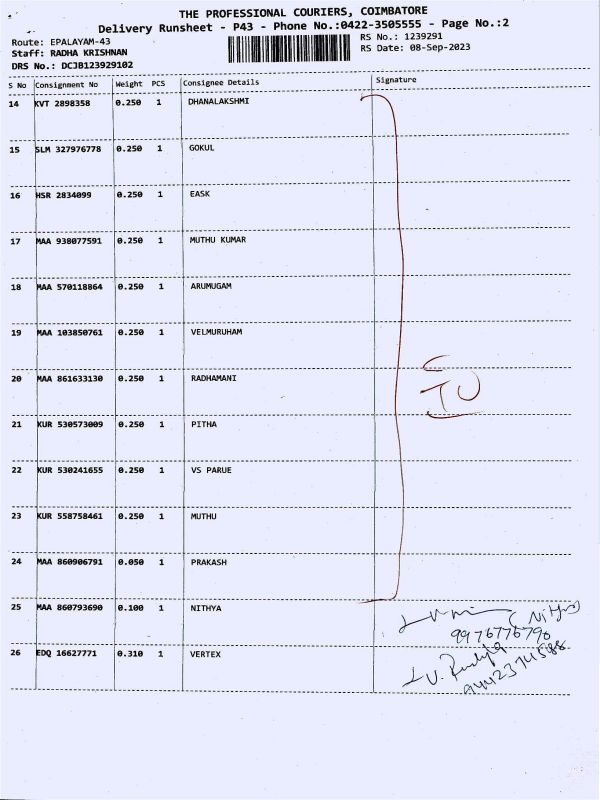 THE PROFESSIONAL COURIERS, COIMBATORE
Delivery Runsheet - P43 - Phone No.:0422-3505555 - Page No.:2
Route: EPALAYAM-43
RS No.: 1239291
Staff: RADHA KRISHNAN
RS Date: 08-Sep-2023
DRS No.: DCJB123929102
S No Consignment No Weight PCS Consignee Details Signature
14 KVT 2898358 0.250 1 DHANALAKSHMI
15 SLM 327976778 0.250 1 GOKUL
16 HSR 2834099 0.250 1 EASK
17 MAA 938077591 0.250 1 MUTHU KUMAR
18 MAA 570118864 0.250 1 ARUMUGAM
19 MAA 103850761 0.250 1 VELMURUHAM
20 MAA 861633130 0.250 1 RADHAMANI
21 KUR 530573009 0.250 1 PITHA
22 KUR 530241655 0.250 1 VS PARUE
23 KUR 558758461 0.250 1 MUTHU
24 MAA 860906791 0.050 1 PRAKASH
25 MAA 860793690 0.100 1 NITHYA
9976776796
26 EDQ 16627771 0.310 1 VERTEX